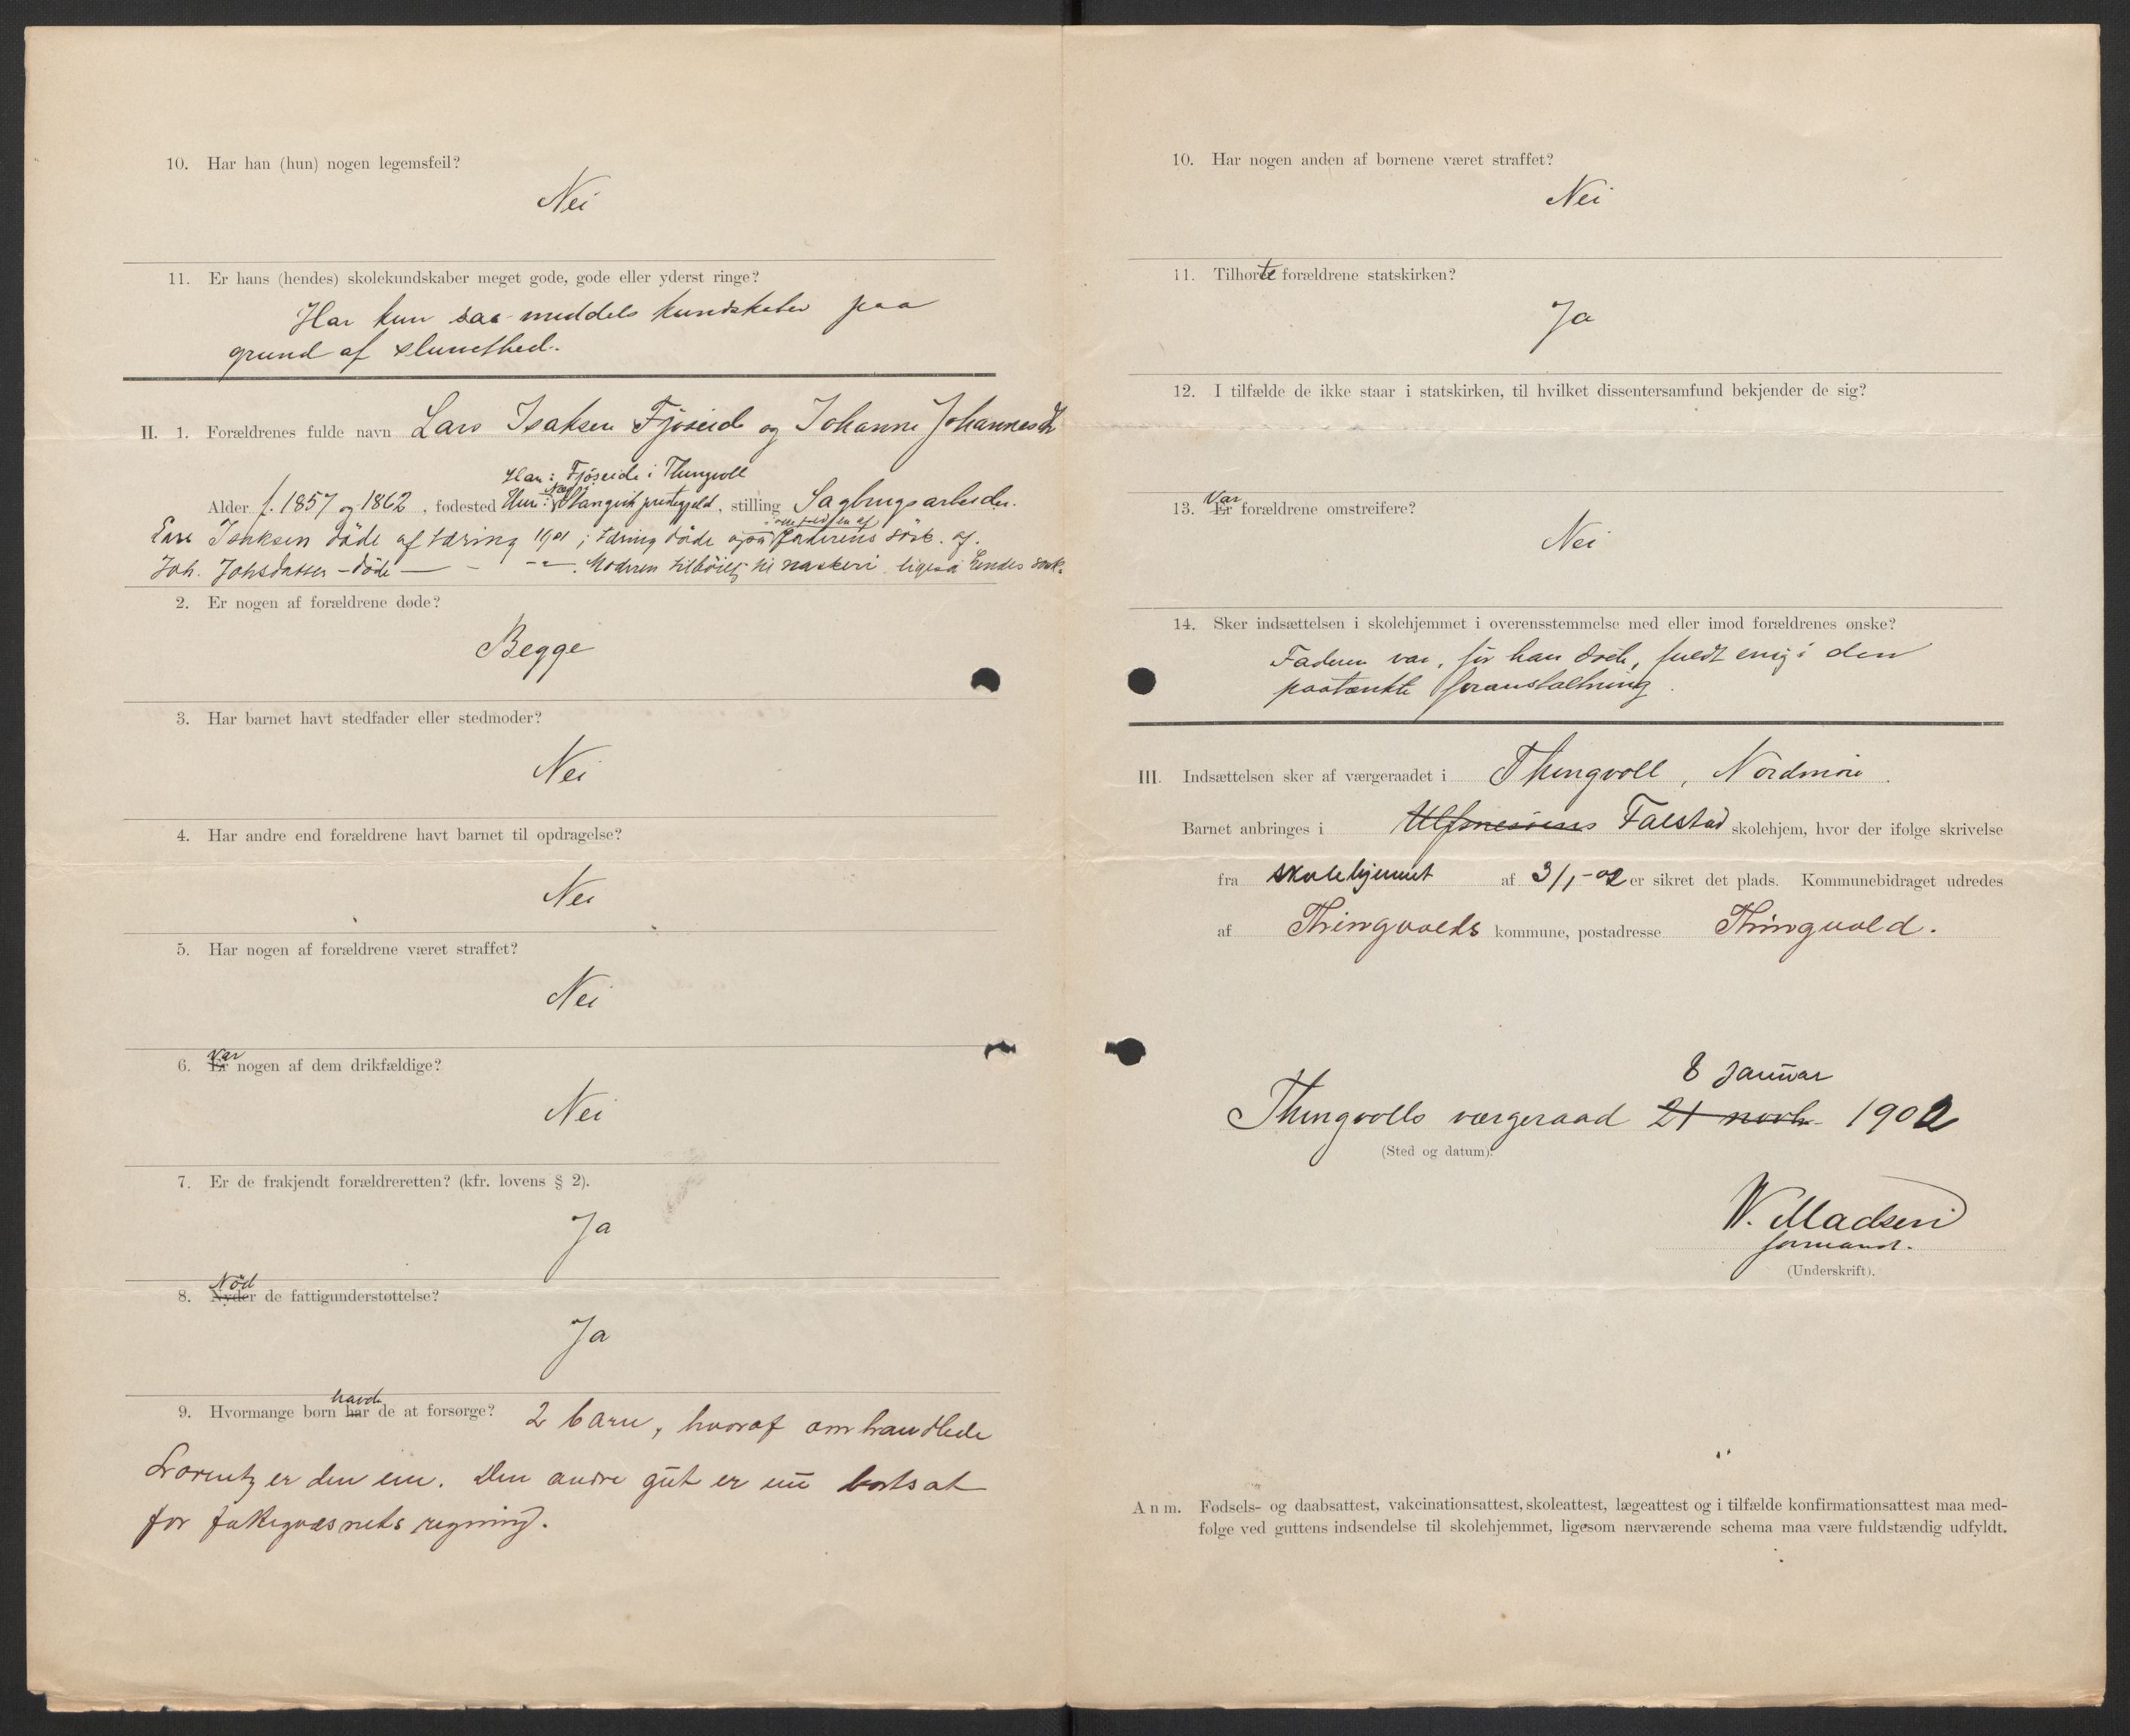 10. Har han (hun) nogen legemsfeil?
Nei
11. Er hans (hendes) skolekundskaber meget gode, gode eller yderst ringe?
Har kun saa middels kundskaber paa
grund af slunethed.
II. 1. Forældrenes fulde navn Lars Isaksen Fjøseid og Johanne Johannesdt
Han: Fjøseide i Thingvoll
Alder f. 1857 og 1862, fødested Hun: Stangvik prestegjeld, stilling Sagbrugsarbeider.
Lars Isaksen døde af tæring 1901; tæring døde også faderens søsk. af.
Joh. Johsdatter – døde — - - „ - . Moderen tilbøielig til naskeri ligeså hendes søsk.
2. Er nogen af forældrene døde?
Begge
3. Har barnet havt stedfader eller stedmoder?
Nei
4. Har andre end forældrene havt barnet til opdragelse?
Nei
5. Har nogen af forældrene været straffet?
Nei
Var
6. Er nogen af dem drikfældige?
Nei
7. Er de frakjendt forældreretten? (kfr. lovens § 2).
Ja
Nød
8. Nyder de fattigunderstøttelse?
Ja
havde
9. Hvormange børn har de at forsørge? 2 barn, hvoraf omhandlede
Lorentz er den ene. Den andre gut er nu bortsat
for fattigvæsnets regning.
10. Har nogen anden af børnene været straffet?
Nei
11. Tilhørte forældrene statskirken?
Ja
12. I tilfælde de ikke staar i statskirken, til hvilket dissentersamfund bekjender de sig?
Var
13. Er forældrene omstreifere?
Nei
14. Sker indsættelsen i skolehjemmet i overensstemmelse med eller imod forældrenes ønske?
Faderen var, før han døde, fuldt enig i den
paatænkte foranstaltning.
III. Indsættelsen sker af værgeraadet i Thingvoll, Nordmøre.
Barnet anbringes i Ulfsnesøens Falstad skolehjem, hvor der ifølge skrivelse
fra skolehjemmet af 3/1-02 er sikret det plads. Kommunebidraget udredes
af Thingvolds kommune, postadresse Thingvold.
8 Januar
Thingvolls værgeraad 21 novbr. 1902
(Sted og datum).
W. Madsen
formand.
(Underskrift).
Anm. Fødsels- og daabsattest, vakcinationsattest, skoleattest, lægeattest og i tilfælde konfirmationsattest maa med-
følge ved guttens indsendelse til skolehjemmet, ligesom nærværende schema maa være fuldstændig udfyldt.